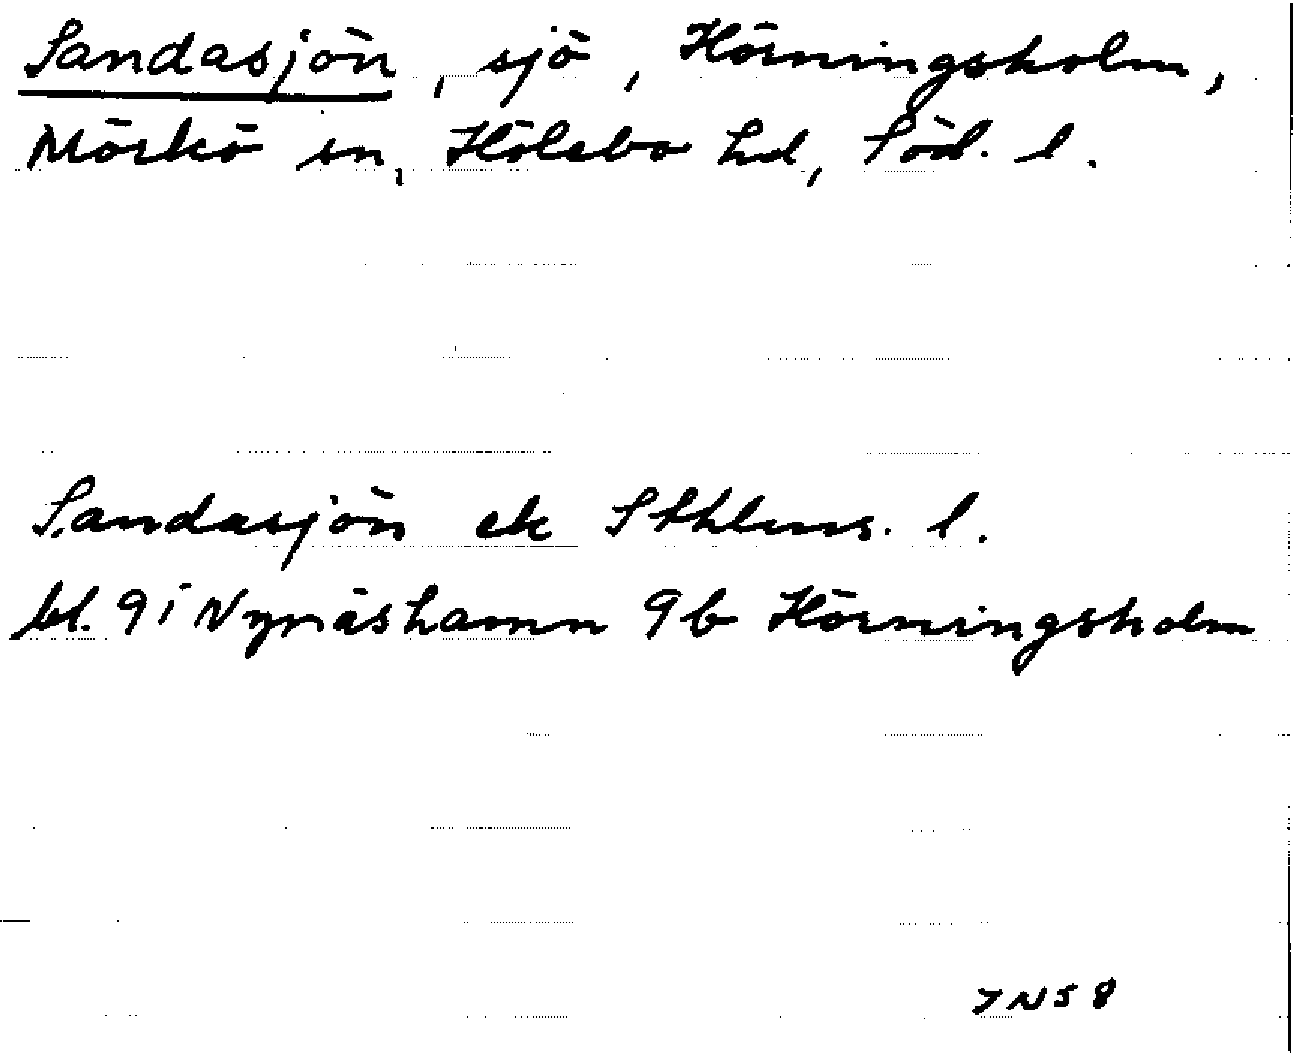 Sandasjön, sjö, Hörningsholm,
Mörkö sn, Hölebo hd, Söd. l.
Sandasjön ek Sthlms. l.
bl. 9i Nynäshamn 9b Hörningsholm
7N58